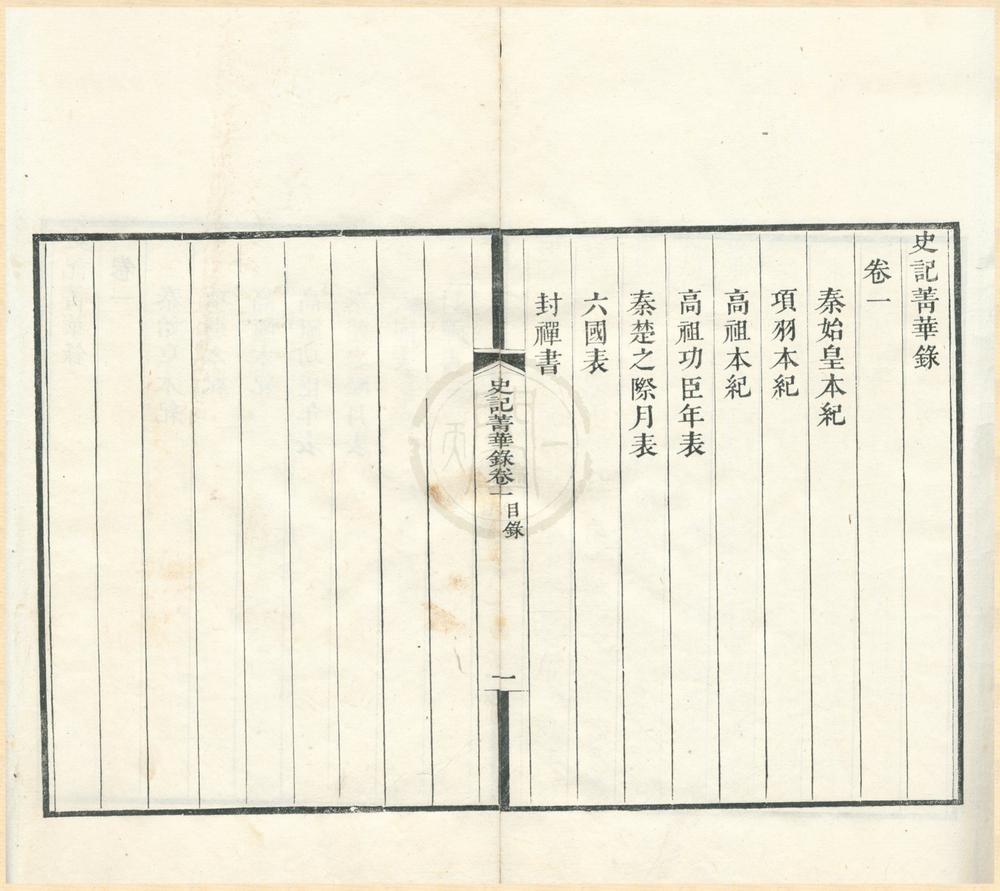 史記菁華錄
卷一
秦始皇本紀
項羽本紀
高祖本紀
高祖功臣年表
秦楚之際月表
六國表
封禪書
史記菁華錄卷一
目錄
一